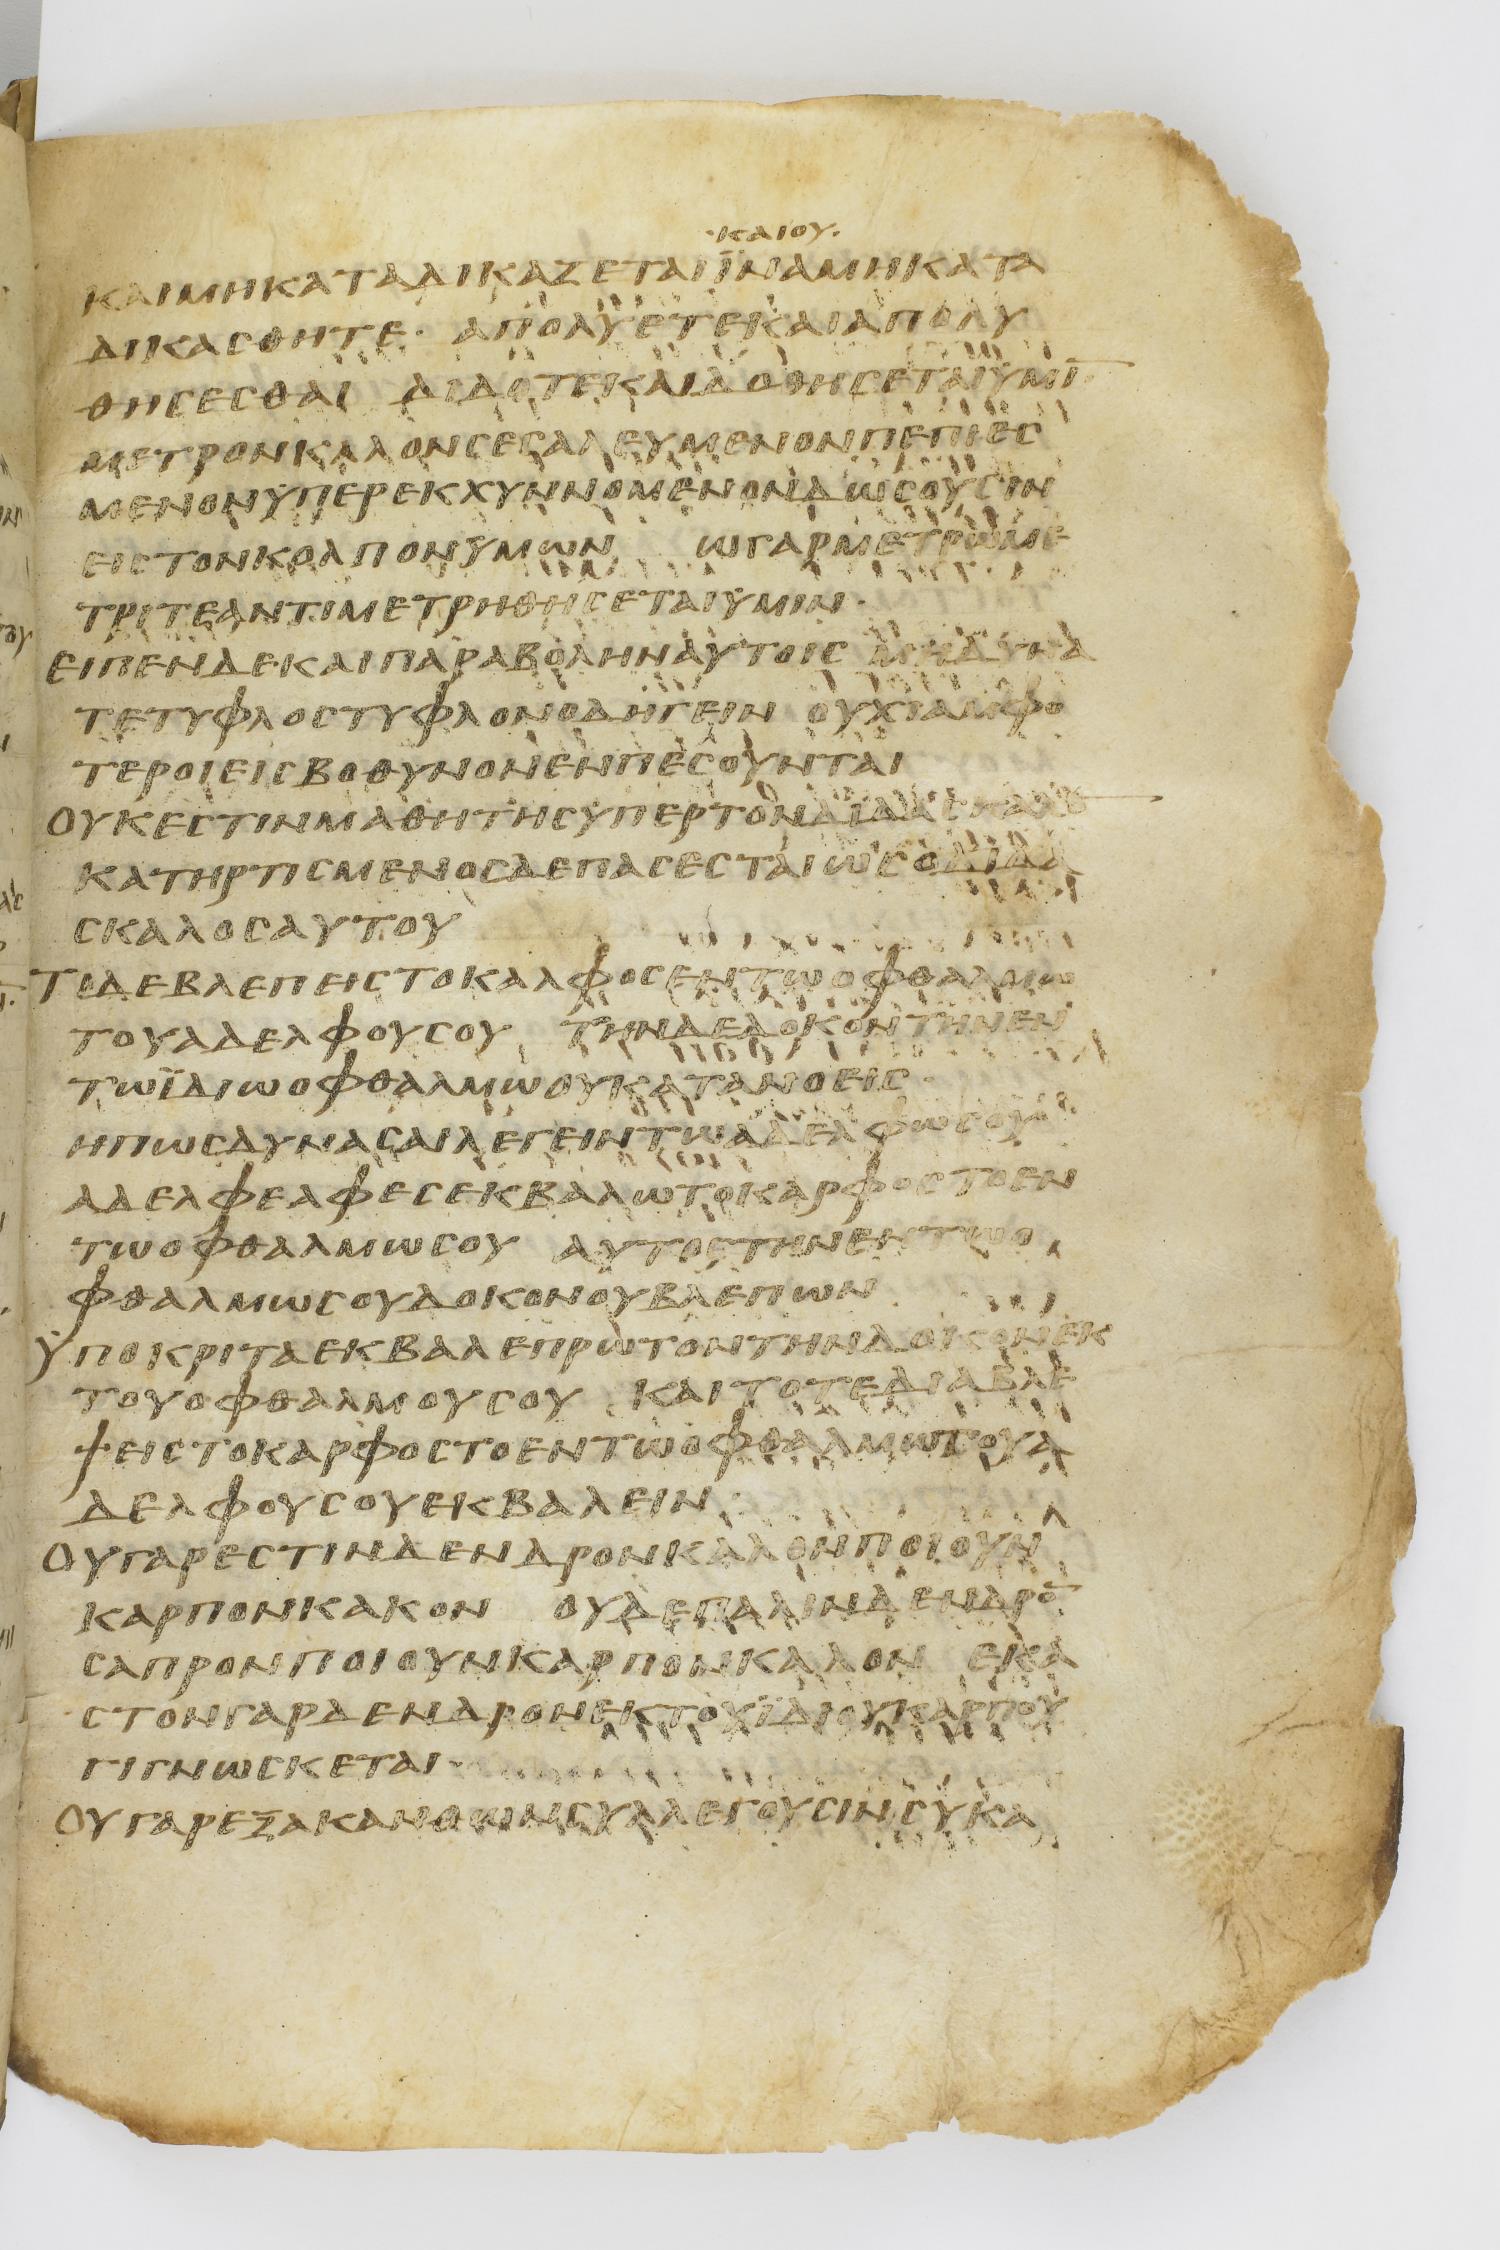 ·καιου·
καιμηκαταδικαζεταιϊναμηκατα
δικασθητε· απολυετεκαιαπολυ
θησεσθαι διδοτεκαιδοθησεταιϋμῑ
μετρονκαλονσεσαλευμενονπεπιεσ
μενονϋπερεκχυννομενονδωσουσιν
ειςτονκολπονϋμων ωγαρμετρωμε
τριτεαντιμετρηθησεταιϋμιν·
ειπενδεκαιπαραβοληναυτοις μηδυνα
τετυφλοςτυφλονοδηγειν ουχιαμφο
τεροιειςβοθυνονενπεσουνται
Ουκεστινμαθητηςϋπερτονδιδασκαλο̄
κατηρτισμενοςδεπαςεσταιωςοδιδα
σκαλοςαυτου
Τιδεβλεπειςτοκαλφοςεντωοφθαλμω
τουαδελφουσου τηνδεδοκοντηνεν
τωϊδιωοφθαλμωουκατανοεις·
ηπωςδυνασαιλεγειντωαδελφωσου
αδελφεαφεςεκβαλωτοκαρφοςτοεν
τωοφθαλμωσου αυτοςτηνεντωο
φθαλμωσουδοκονουβλεπων
Ϋποκριταεκβαλεπρωτοντηνδοκονεκ
τουοφθαλμουσου καιτοτεδιαβλε
ψειςτοκαρφοςτοεντωοφθαλμωτουα
δελφουσουεκβαλειν·
Ουγαρεστινδενδρονκαλονποιουν
καρπονκακον ουδεπαλινδενδρο̄
σαπρονποιουνκαρπονκαλον εκα
στονγαρδενδρονεκτουϊδιουκαρπου
γιγνωσκεται·
Ουγαρεξακανθωνσυλλεγουσινσυκα